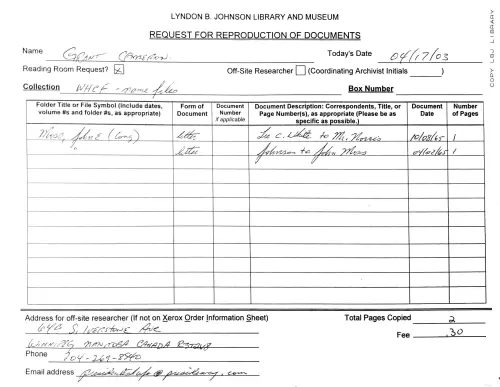 LYNDON B. JOHNSON LIBRARY AND MUSEUM
REQUEST FOR REPRODUCTION OF DOCUMENTS
COPY LBJ LIBRARY
Name GRANT CAMERON Today's Date 04/17/03
Reading Room Request? Off-Site Researcher (Coordinating Archivist Initials )
Collection WHCF - name files Box Number
Folder Title or File Symbol (Include dates, volume #s and folder #s, as appropriate) Form of Document Document Number if applicable Document Description: Correspondents, Title, or Page Number(s), as appropriate (Please be as specific as possible.) Document Date Number of Pages
Moss, John E (Cong) letter Lee C. White to Mr. Norris 10/08/65 1
" letter Johnson to John Moss 1
Address for off-site researcher (If not on Xerox Order Information Sheet) Total Pages Copied 2
649 S. Ave Fee .30
WINNIPEG MANITOBA CANADA
Phone 204-269-8940
Email address